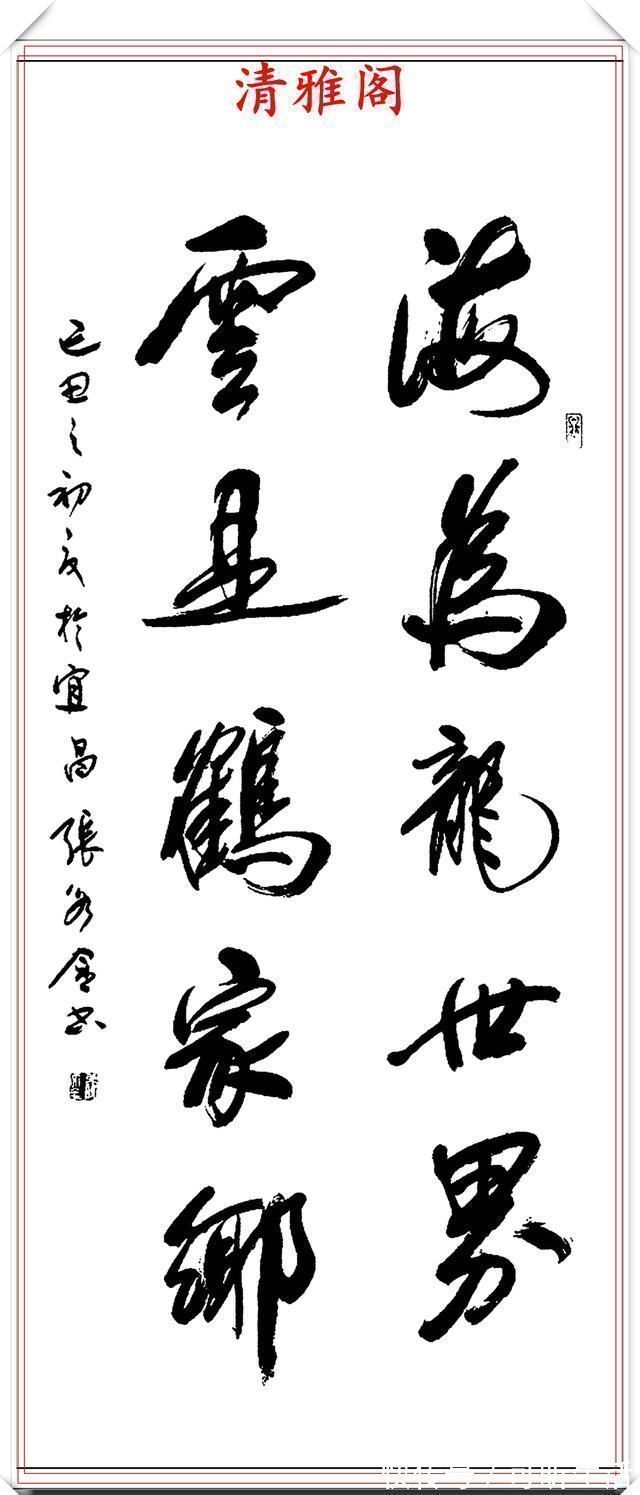 清雅阁
海為龍世界
雲是鶴家鄉
己丑之初夏於宜昌張
書